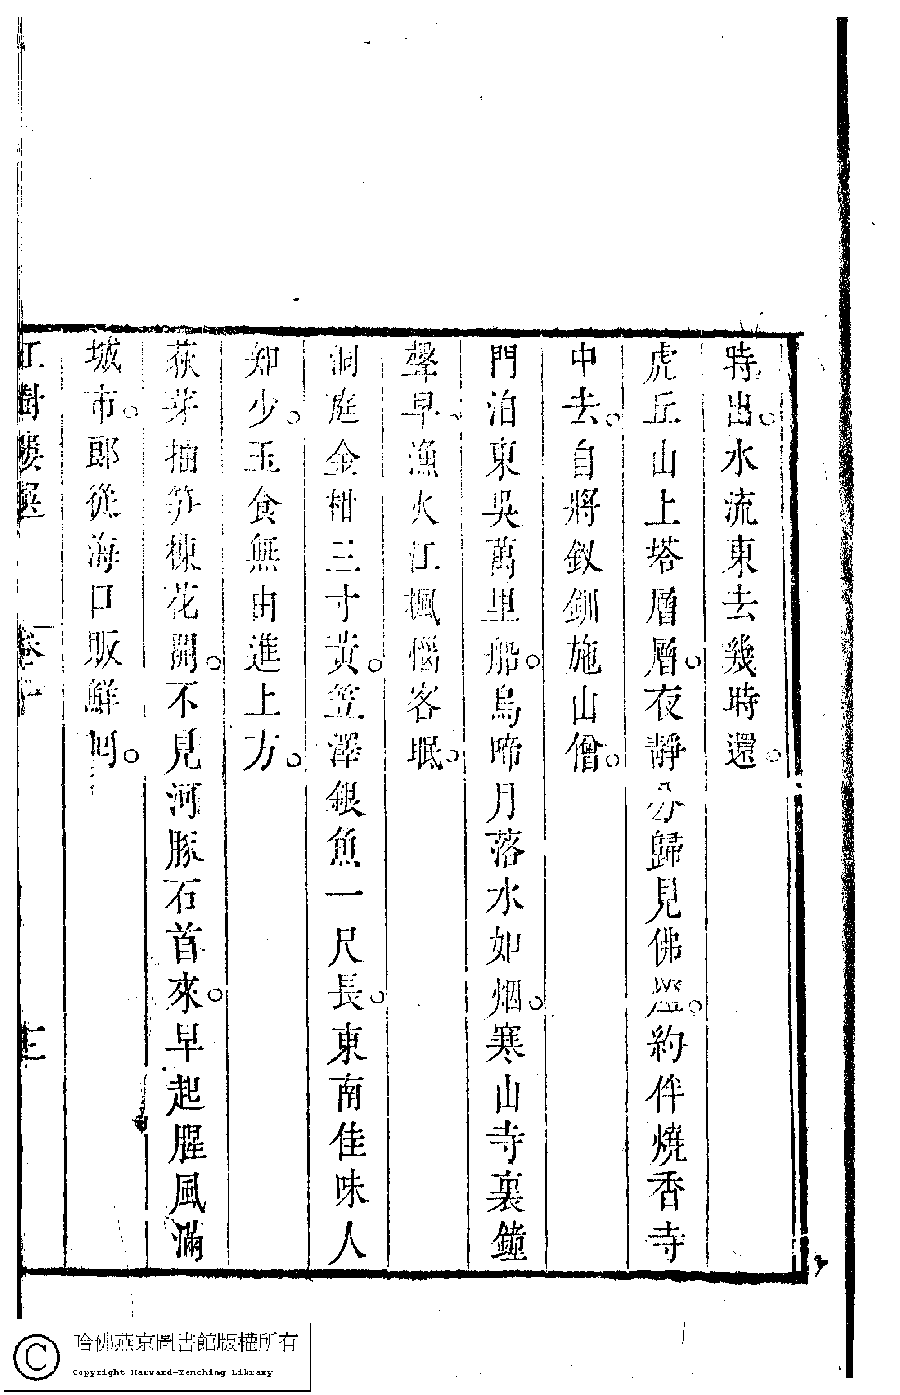 時出。水流東去幾時還。
虎丘山上塔層層。夜靜分歸見佛燈。約伴燒香寺
中去。自將釵釧施山僧。
門泊東吳萬里船。烏啼月落水如烟。寒山寺裏鐘
聲早。漁火江楓惱客眠。
洞庭金柑三寸黃。笠澤銀魚一尺長。東南佳味人
知少。玉食無由進上方。
荻芽抽笋楝花開。不見河豚石首來。早起腥風滿
城市。郎從海口販鮮回。
紅樹樓選 卷十
哈佛燕京圖書館版權所有
Copyright Harvard-Yenching Library